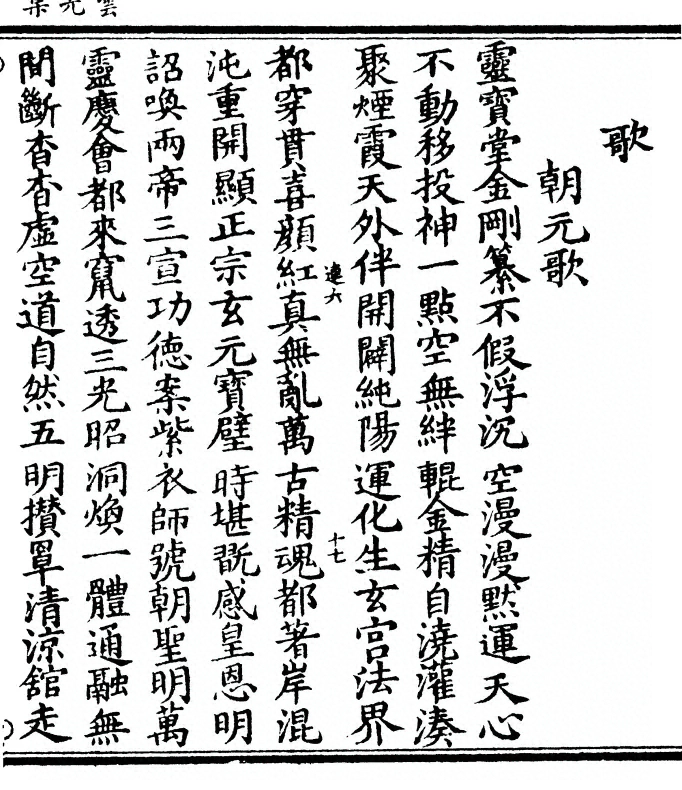 歌
朝元歌
靈寶堂金剛纂不假浮沉空漫漫默運天心
不動移投神一點空無絆輥金精自澆灌湊
聚煙霞天外伴開闢純陽運化生玄宮法界
都穿貫喜顏紅真無亂萬古精魂都著岸混
沌重開顯正宗玄元寶壁時堪翫感皇恩明
詔喚兩帝三宣功德案紫衣師號朝聖明萬
靈慶會都來竄透三光昭洞煥一體通融無
間斷杳杳虛空道自然五明攢罩清涼舘走
連六
十七